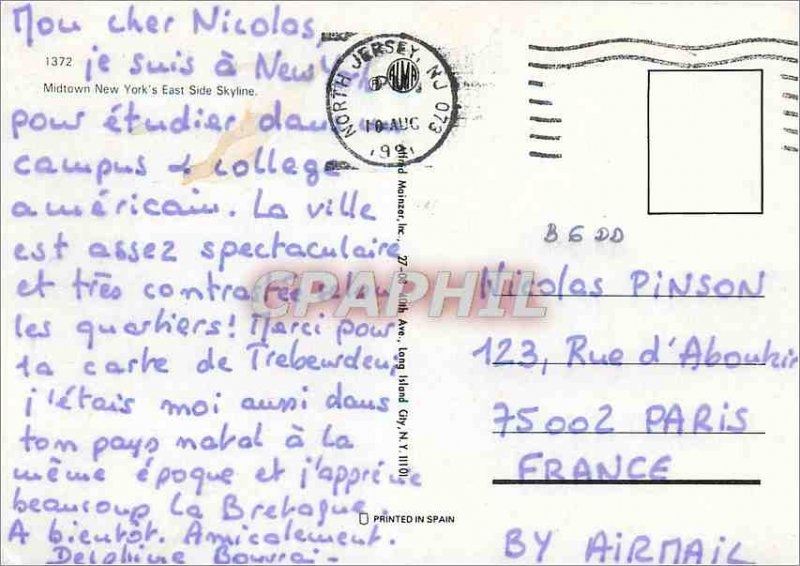 Mon cher Nicolas,
1372
je suis à New York
Midtown New York's East Side Skyline.
pour étudier dans un
campus & college
américain. La ville
est assez spectaculaire
et très contrastée selon
les quartiers! Merci pour
ta carte de Trebeurden,
j'étais moi aussi dans
ton pays natal à la
même époque et j'apprécie
beaucoup la Bretagne.
A bientôt. Amicalement.
Delphine
NORTH JERSEY, NJ 073
10 AUG
Alfred Mainzer, Inc., 27-08 40th Ave., Long Island City, N.Y. 11101
PRINTED IN SPAIN
CPARHIL
B 6 DD
Nicolas PINSON
123, Rue d'Aboukir
75002 PARIS
FRANCE
BY AIRMAIL